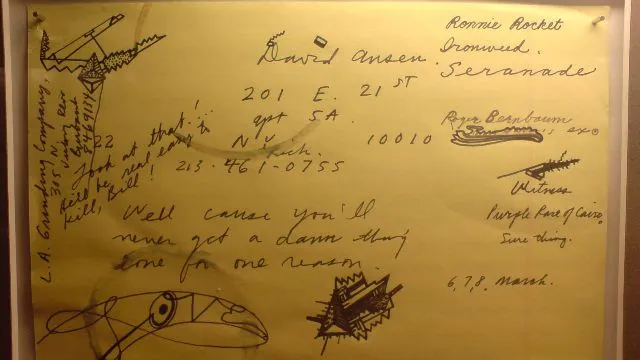 Ronnie Rocket
Ironweed.
Seranade
David Ansen.
201 E. 21 ST
apt 5A.
N.Y. 10010
213-461-0755
Roger Bernbaum
Witness
Purple Rose of Cairo.
Sure thing.
6,7,8, March.
L.A. Grinding Company,
305 N.
Victory
Burbank
22
Look at that...!
He'll be real easy to
Kill, Bill!
Well cause you'll
never get a damn thing
done for one reason.